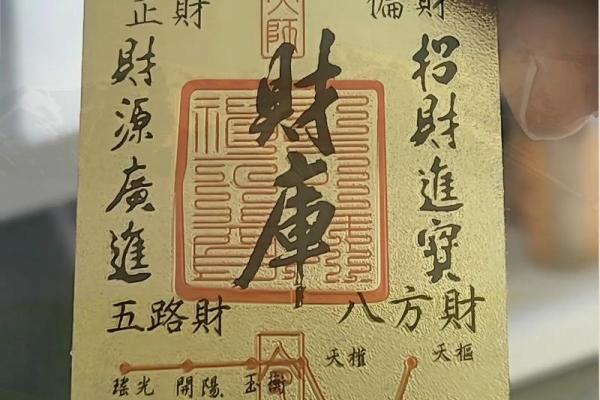 正財
偏財
師
招財進寶
財庫
財源廣進
五路財
八方財
天權
天樞
瑤光
開陽